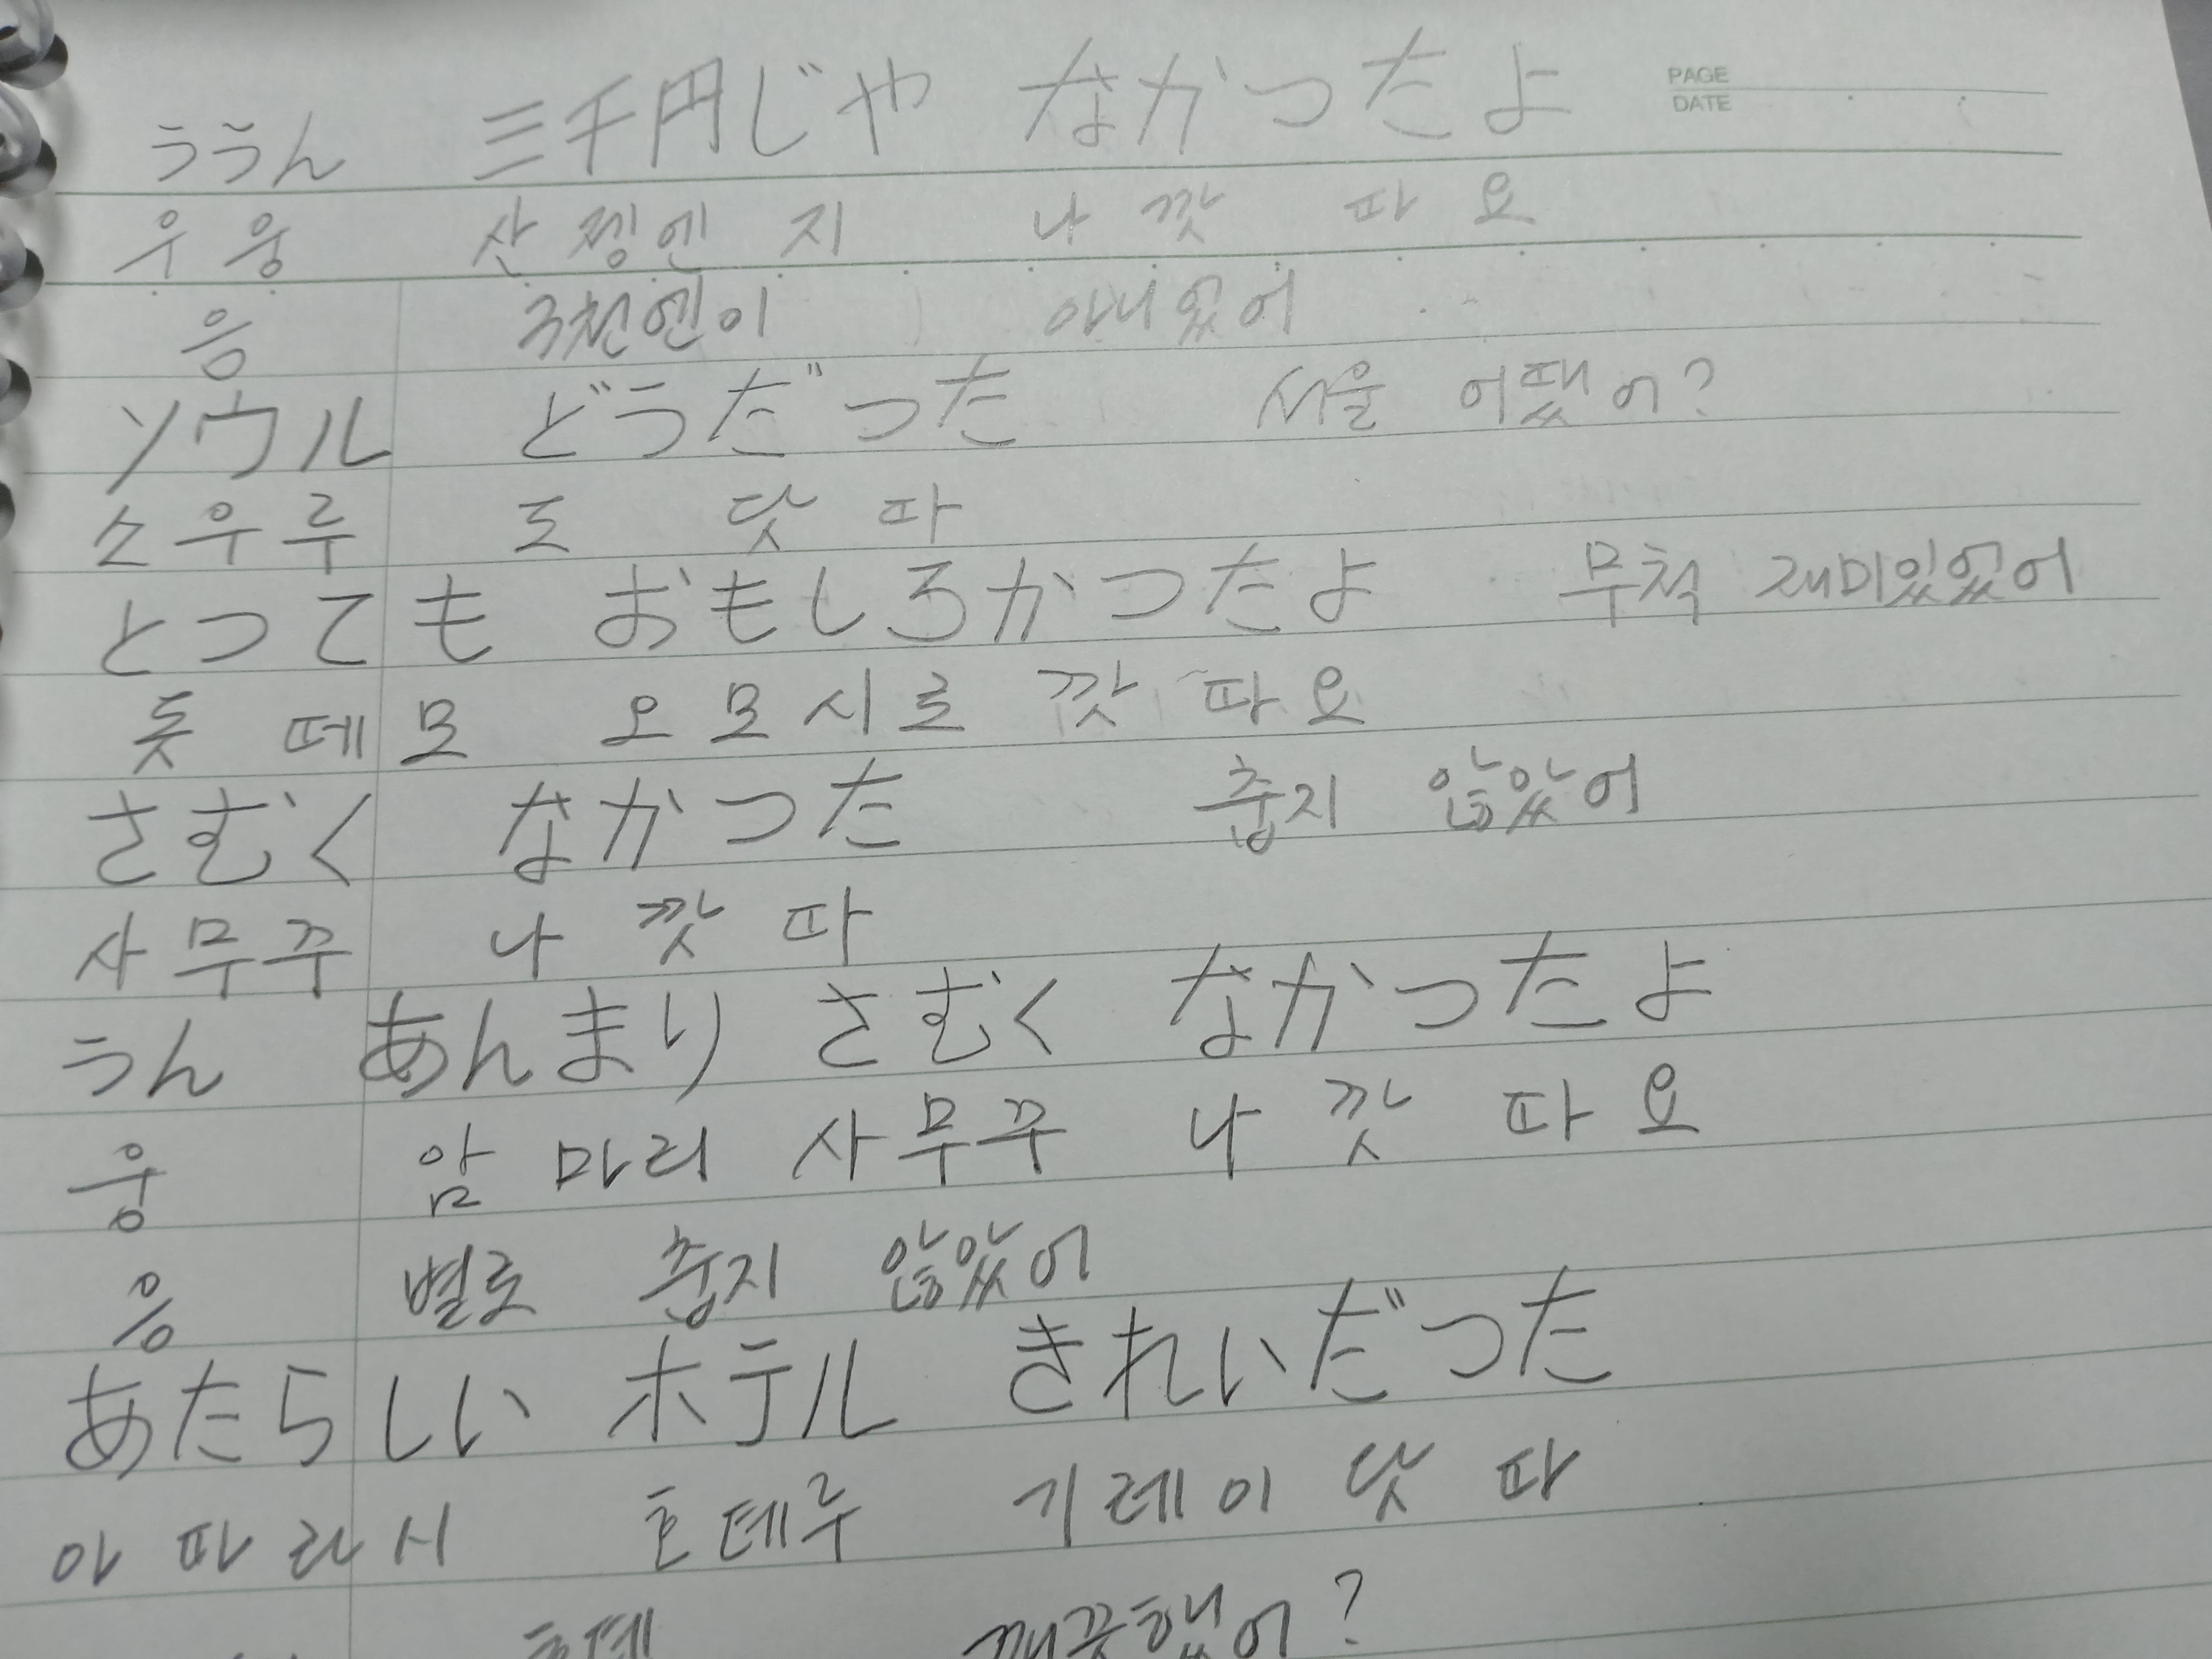 PAGE
DATE
ううん 三千円じゃ なかつたよ
우웅 산젱엔 지 나깟 따요
응 3천엔이 아니었어
ソウル どうだつた 서울 어땠어?
소우루 도 닷따
とつても おもしろかつたよ 무척 재미있었어
톳떼모 오모시로깟따요
さむく なかつた 춥지 않았어
사무꾸 나깟따
うん あんまり さむく なかつたよ
웅 암마리 사무꾸 나깟따요
응 별로 춥지 않았어
あたらしい ホテル きれいだつた
아따라시 호테루 기레이닷따
호텔 깨끗했어?